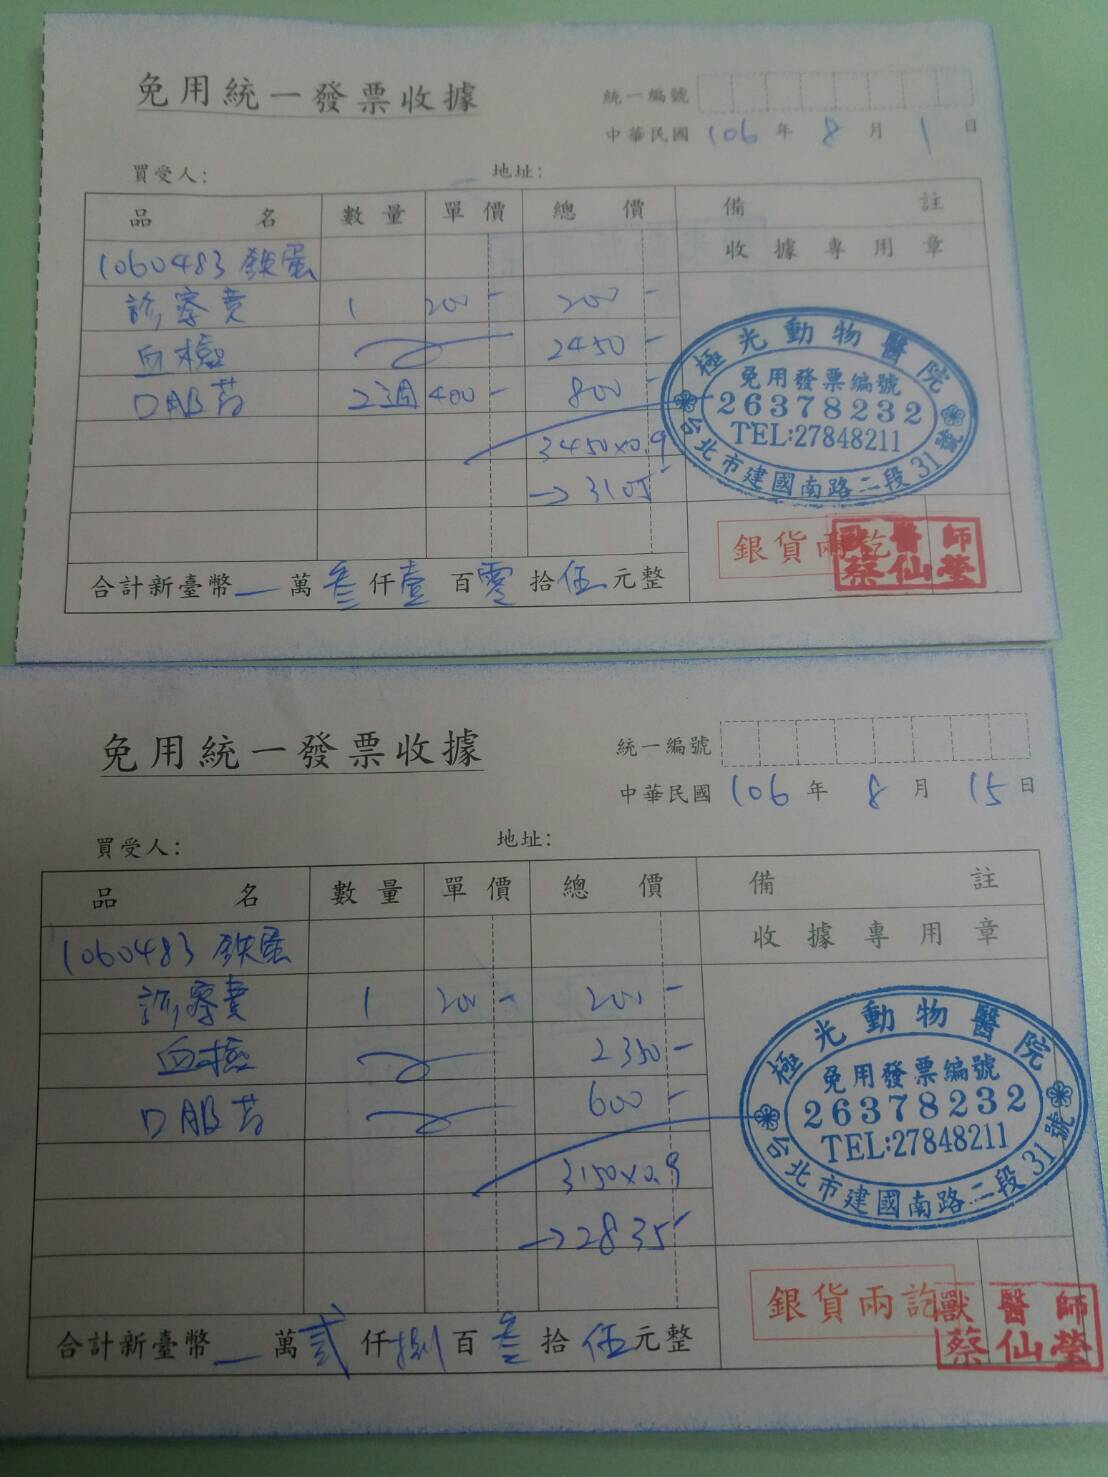 免用統一發票收據
統一編號
中華民國 106 年 8 月 1 日
買受人: 地址:
品名 數量 單價 總價 備註
1060483 鉄蛋 收據專用章
診察費 1 200- 200-
血檢 2450-
口服葯 2週 400- 800-
3450x0.9
→ 3105
極光動物醫院
免用發票編號
26378232
TEL:27848211
台北市建國南路二段31號
銀貨兩訖
獸醫師
蔡仙瑩
合計新臺幣 萬叁仟壹百零拾伍元整
免用統一發票收據
統一編號
中華民國 106 年 8 月 15 日
買受人: 地址:
品名 數量 單價 總價 備註
1060483 鉄蛋 收據專用章
診察費 1 200- 200-
血檢 2350-
口服葯 600-
3150x0.9
→2835
極光動物醫院
免用發票編號
26378232
TEL:27848211
台北市建國南路二段31號
銀貨兩訖
獸醫師
蔡仙瑩
合計新臺幣 萬貳仟捌百叁拾伍元整